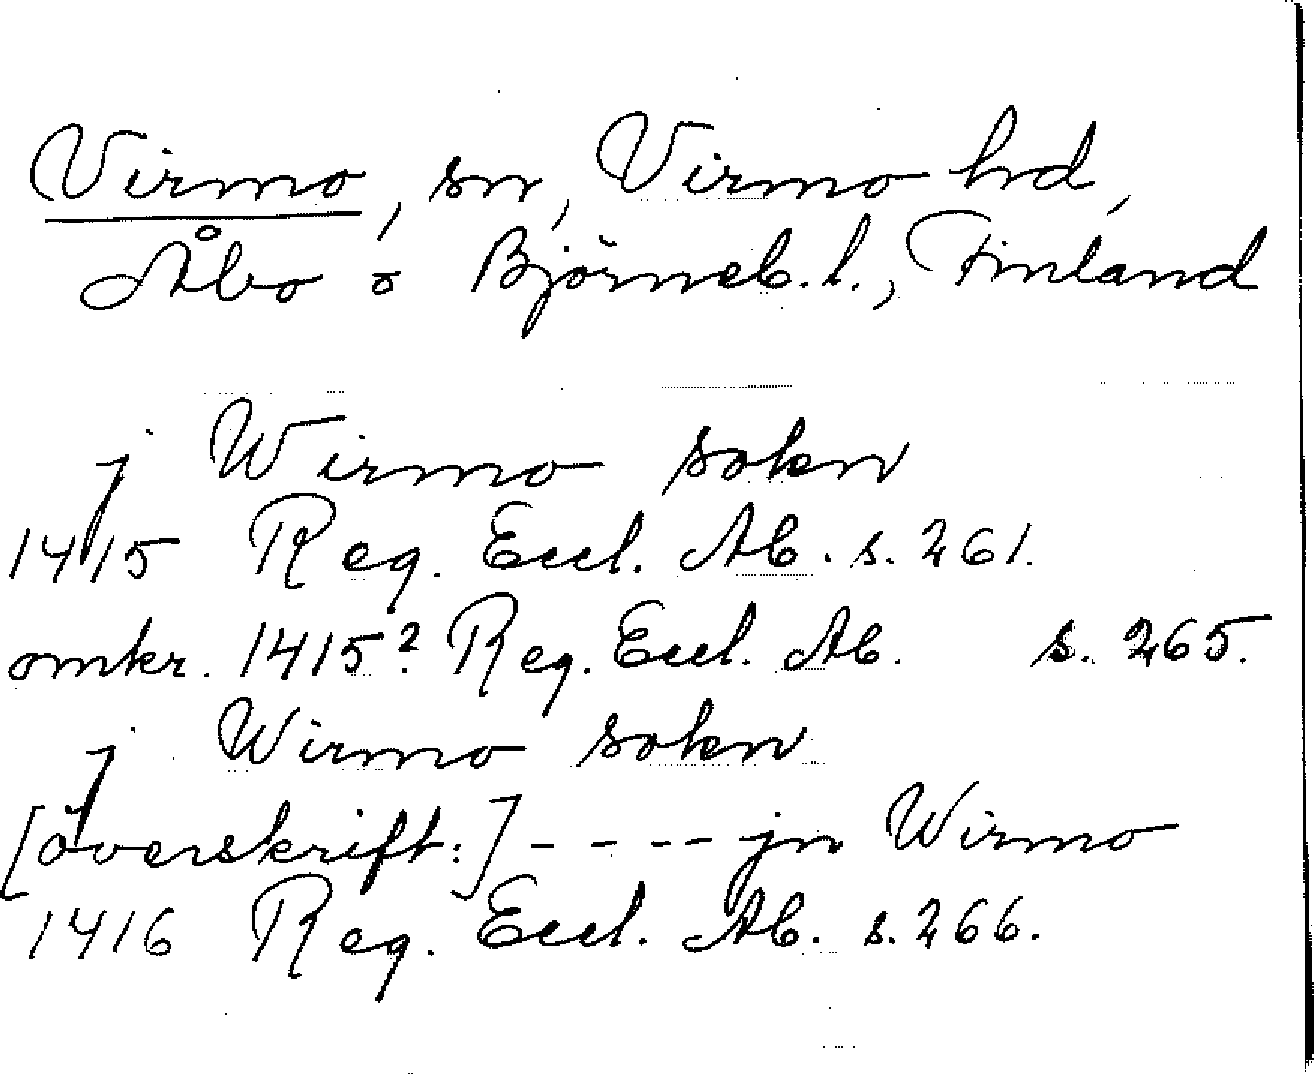 Virmo, sn, Virmo hd,
Åbo o Björneb. l., Finland
j Wirmo sokn
1415 Reg. Eccl. Ab. s. 261.
omkr. 1415? Reg. Eccl. Ab. s. 265.
j Wirmo sokn
[överskrift:] - - - - jn Wirmo
1416 Reg. Eccl. Ab. s. 266.